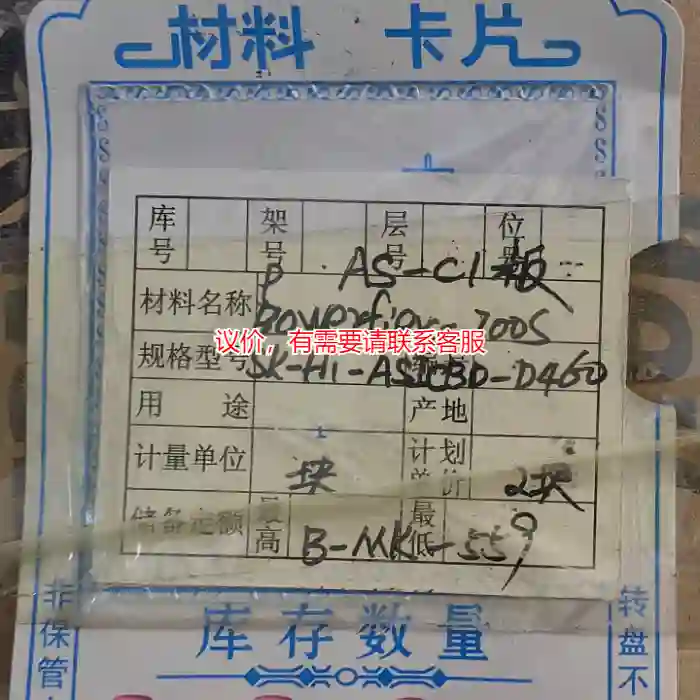 材料 卡片
库号 架号 层号 位号
P AS-C1板
材料名称 Powerflex-700S
议价，有需要请联系客服
规格型号 SK-H1-ASICBD-D460
用途 产地
计量单位 块 计划单价 2块
储备定额 最高 最低
B-MK-559
非保管 转盘不
库存数量